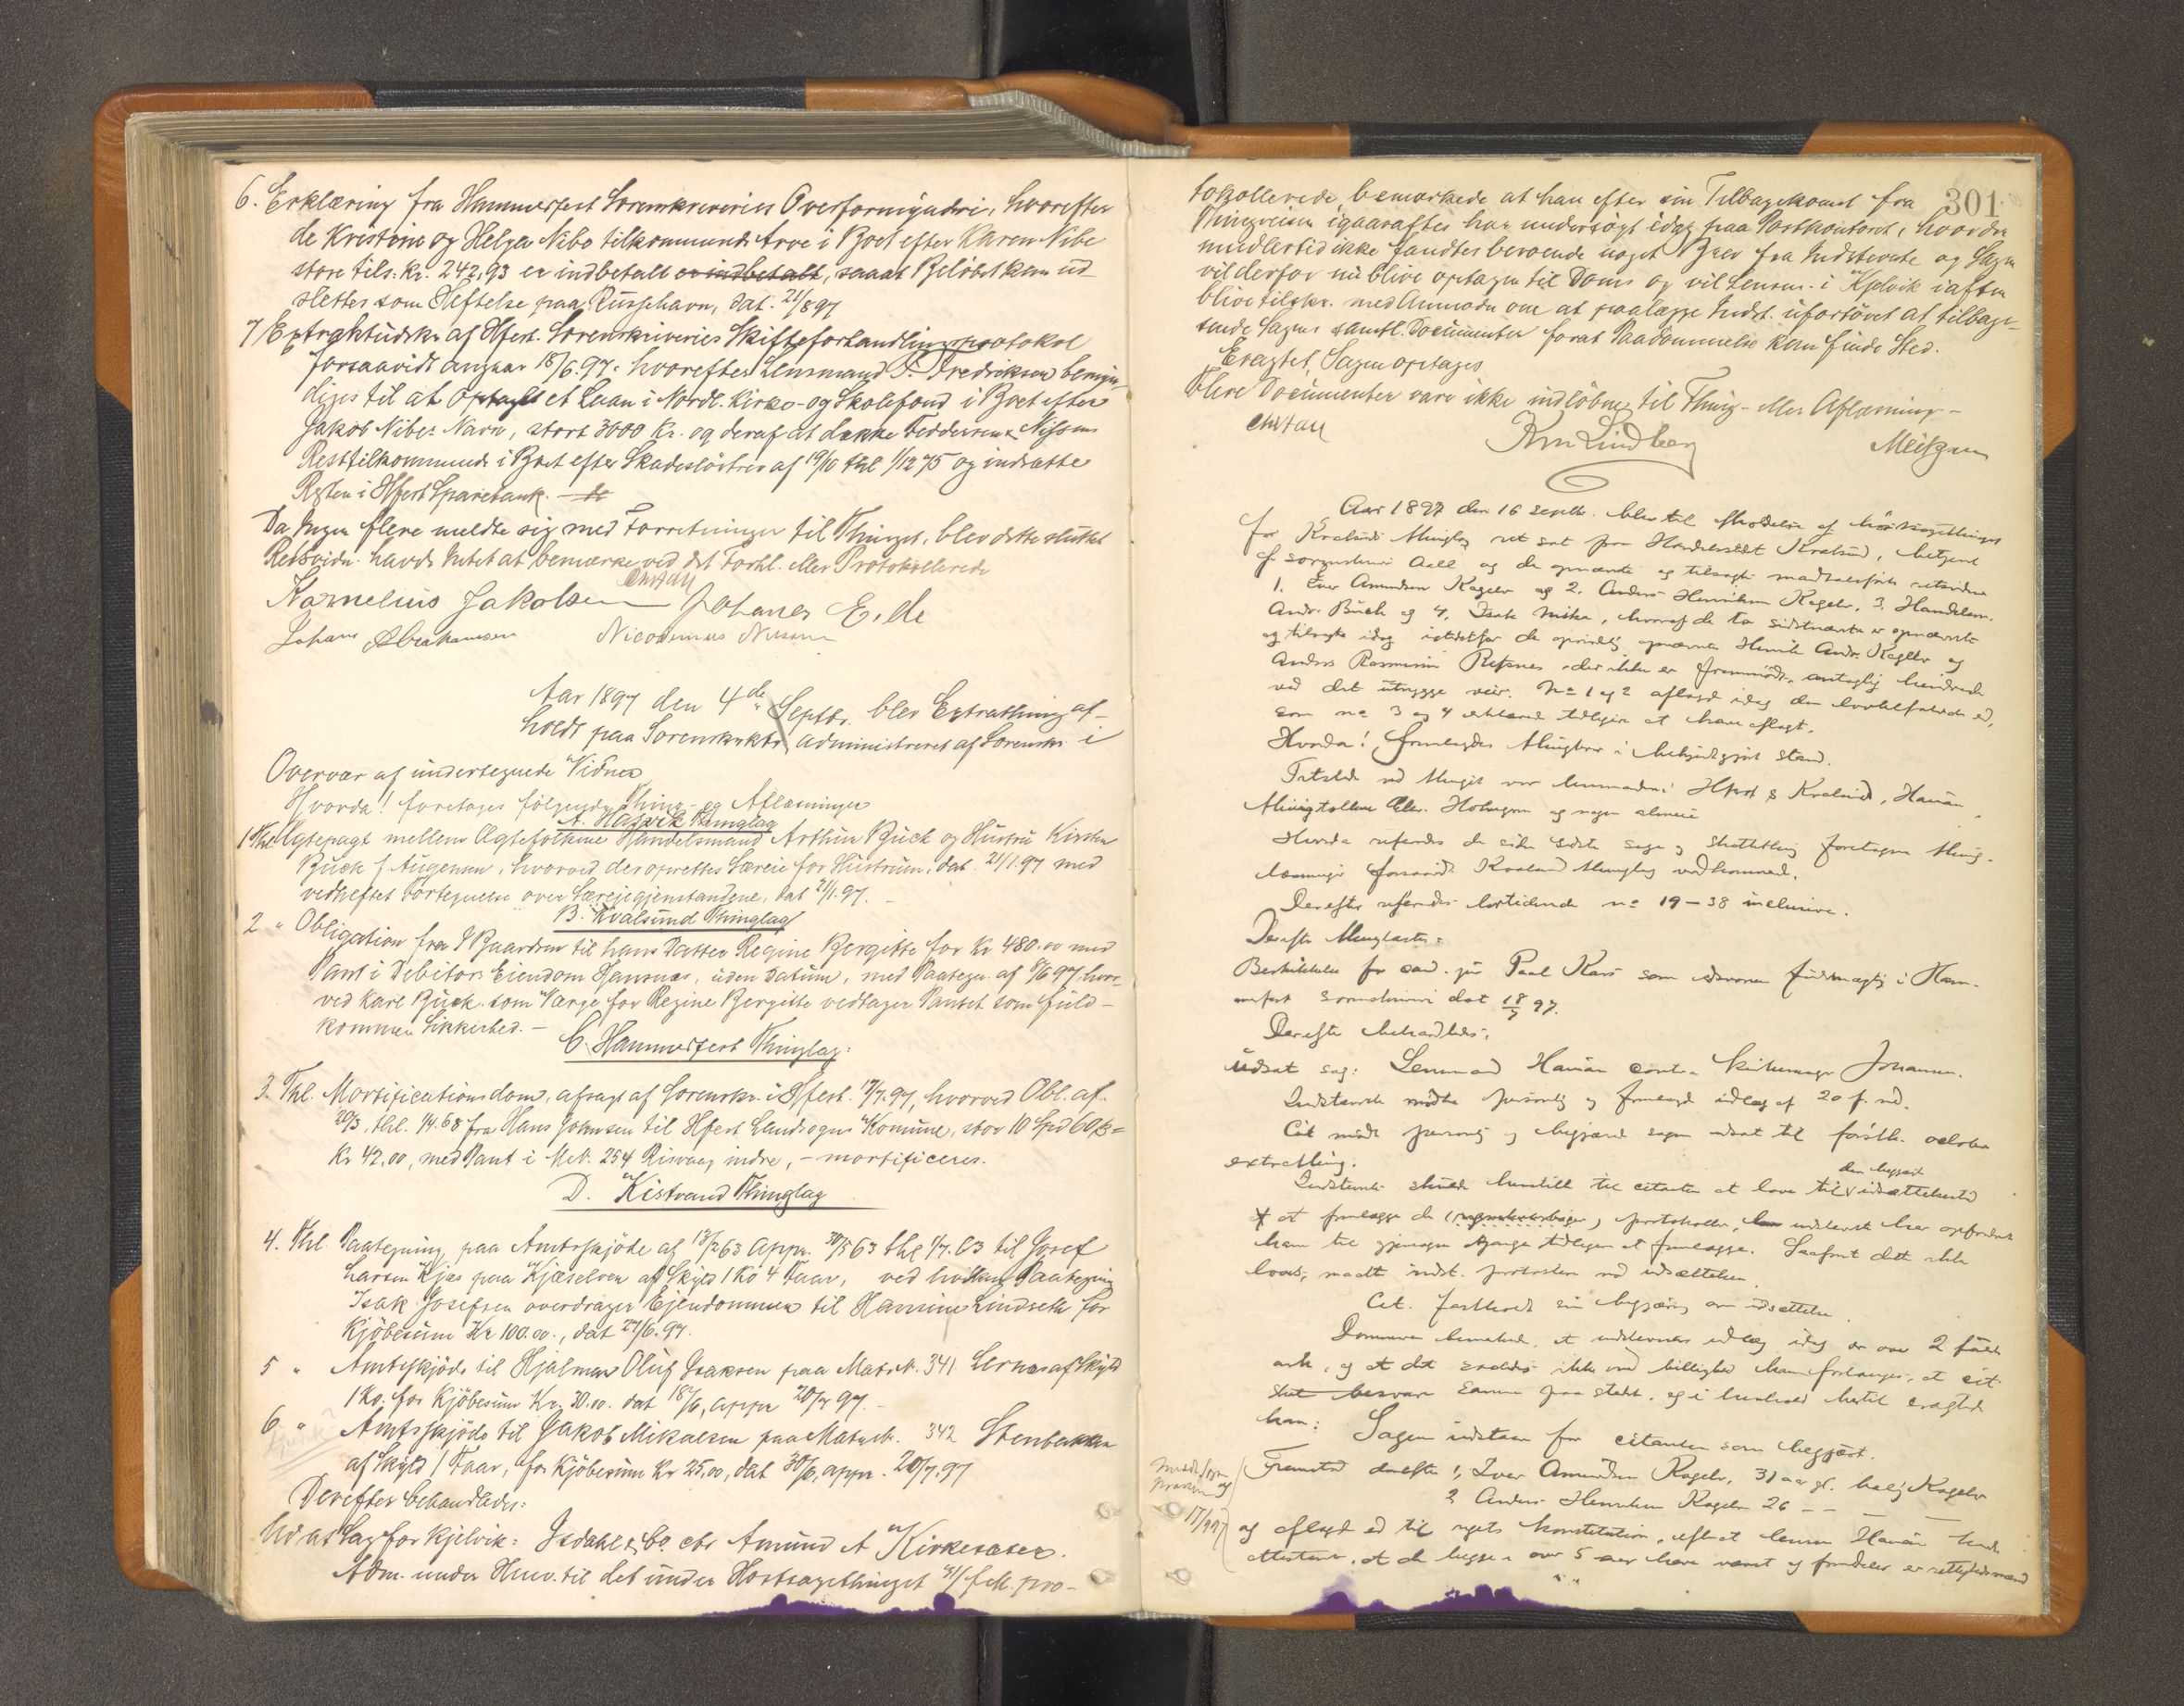 6. Erklæring fra Hammerfest Sorenskriveries Overformynderi, hvorefter
de Kristine og Helga Nibe tilkommende Arve i Boet efter Karen Nibe
store tils. kr. 242,93 er indbetalt er indbetalt, saaat Beløbet kan ud-
slettes som Heftelse paa Russehavn, dat. 21/8 97
7/ Extraktudskr. af Hfest. Sorenskriveries Skifteforhandlingsprotokol
forsaavidt angaar 18/6. 97. hvorefter Lensmand Fredriksen bemyn-
diges til at optage et Laan i Nordl. Kirke- og Skolefond i Boet efter
Jakob Nibes Navn, stort 3000 Kr. og deraf at dække Feddersen & Nissens
Resttilkommende i Boet efter Skadesløsbrev af 19/10 thl 1/12 75 og indsætte
Resten i Hfest Sparebank.
Da Ingen flere meldte sig med Forretninger til Thinget, blev dette sluttet
Retsvidn. havde Intet at bemærke ved det Forhl. eller Protokollerede
Chr Aall
Kornelius Jakobsen Johanes E. de
Johans Abrahamsen Nicodemus Nilssen
Aar 1897 den 4de Septbr. blev Extrathing af-
holdt paa Sorenskrktr. administreret af Sorenskr. i
Overvær af undertegnede Vidner
Hvorda! foretoges følgende Thing- og Aflæsninger
A. Hasvik Thinglag
1 Thl. Ægtepagt mellem Ægtefolkene Handelsmand Arthur Buck og Hustru Kirsten
Buck f. Augensen, hvorved der oprettes Særeie for Hustruen, dat. 21/1. 97 med
vedheftet Fortegnelse over Særejegjenstandene, dat 21/1. 97. -
B. Kvalsund Thinglag
2 " Obligation fra J Baardsen til hans Datter Regine Bergitte for Kr 480.00 med
Pant i Debitors Eiendom Hannnæs, uden Datum, med Paategn. af 8/6 97, hvor-
ved Karl Buck som Værge for Regine Bergitte vedtager Pantet som fuld-
kommen Sikkerhed. -
C. Hammerfest Thinglag:
3. Thl. Mortificationsdom, afsagt af Sorenskr. i Hfest. 17/7. 97, hvorved Obl. af.
20/3, thl. 1/4. 68 fra Hans Johnsen til Hfest Landsogns Komune, stor 10 Spd 60 ß =
Kr 42,00, med Pant i M.N. 254 Risvaag indre, - mortificeres.
D. Kistrand Thinglag
4. Thl Paategning paa Amtsskjøde af 13/2 63 appr. 30/5 63 thl 1/7. 63 til Josef
Larsen Kjæs paa Kjæselven af Skyld 1 Ko 4 Faar, ved hvilken Paategning
Isak Josefsen overdrager Ejendommen til Hansine Lindseth for
Kjøbesum Kr 100.00., dat 27/6. 97.
5 " Amtsskjøde til Hjalmar Oluf Isaksen paa Mat. N. 341 Lernes af Skyld
1 Ko. for Kjøbesum Kr. 30.00. dat 18/6, appr 20/7 97. -
6 " Amtsskjøde til Jakob Mikalsen paa Matr. N. 342 Stenbakken
af Skyld 1 Faar, for Kjøbesum Kr 25,00, dat 30/6, appr. 20/7. 97
Derefter behandledes:
Udsat Sag for Kjelvik: Isdahl & Co. ctr Amund A Kirkesæter.
Adm. under Henv. til det under Høstsagethinget 4/ f.M. pro-
301
tokollerede, bemærkede at han efter sin Tilbagekomst fra
Thingreisen igaaraftes har undersøgt idag paa Postkontoret, hvor der
imidlertid ikke fandtes beroende noget Brev fra Indstevnte og Sagen
vil derfor nu blive optagen til Doms og vil Lensm. i Kjelvik iaften
blive tilskr. med Anmoden om at paalægge Indst. ufortøvet at tilbage-
sende Sagens samtl. Documenter forat Paadømmelse kan finde Sted.
Eragtet, Sagen optages
Flere Documenter vare ikke indløbne til Thing- eller Aflæsning -
Chr Aall Lindberg
Aar 1897 den 16 septbr. blev til afholdelse af høstsagethinget
for Kvalsunds thinglag ret sat paa Handelsstedet Kvalsund, betjent
af sorenskriver Aall og de opnævnte og tilsagte retsvidner
1. Iver Amundsen Kogelv og 2. Anders Henriksen Kogelv, 3. Handelsm.
Andr. Buch og 4. Isak Mikk, hvoraf de to sidstnævnte er opnævnte
og tilsagte idag istedetfor de oprindelig opnævnte Henrik Andr. Kogelv og
Anders Rasmussen Refsnes, der ikke er fremmødt, antagelig hindrede
ved det utrygge veir. No 1 og 2 aflagde idag den lovbefalede ed,
som no 3 og 4 erklærede tidligere at have aflagt.
Hvorda! fremlagdes thingbrev i bekjendtgjort stand.
Tilstede ved thinget var lensmanden i Hfest & Kvalsund, Hauan
thingtolken Holmgren og nogen almue
Hvorda refereredes de siden sidste sage og skattething foretagne thing-
læsninger forsaavidt Kvalsund thinglag vedkommende.
Derefter refereredes lovtidende no 19 - 38 inclusive.
Derefter thinglæstes:
Beskikkelse for cand. jur Paal Kaas som edsvoren fuldmægtig i Ham-
merfest sorenskriveri dat 18/7 97.
Derefter behandledes:
Udsat sag: Lensmand Hauan contra Kirkesanger Johansen.
Indstevnte mødte personlig og fremlagde indlæg af 20 f. md.
Cit. mødte personlig og begjærede sagen udsat til førsth. october
extrathing.
Indstevnte skulde henstille til citanten at love til den begjærte udsættelsestid
at fremlægge de (regnskabsbøger) protokoller, indstevnte har opfordret
ham til gjentagne gange tidligere at fremlægge. Saafremt dette ikke
loves, maatte indst. protestere mod udsættelsen.
Cit. fastholdt sin begjæring om udsættelse.
Dommeren bemærkede, at indstevntes indlæg idag er over 2 fulde
ark, og at det saaledes ikke med billighed kan forlanges, at cit.
skal besvare samme paa stedet, og i henhold hertil eragtede
han: Sagen udstaar for citanten som begjært.
Fremstod derefter 1, Iver Amundsen Kogelv, 31 aar gl. bolig Kogelv
2 Anders Henriksen Kogelv 26 - -
17/9 97
og aflagde ed til rigets konstitution, efterat lensm Hauan havde
attesteret, at de begge i over 5 aar have været og fremdeles er